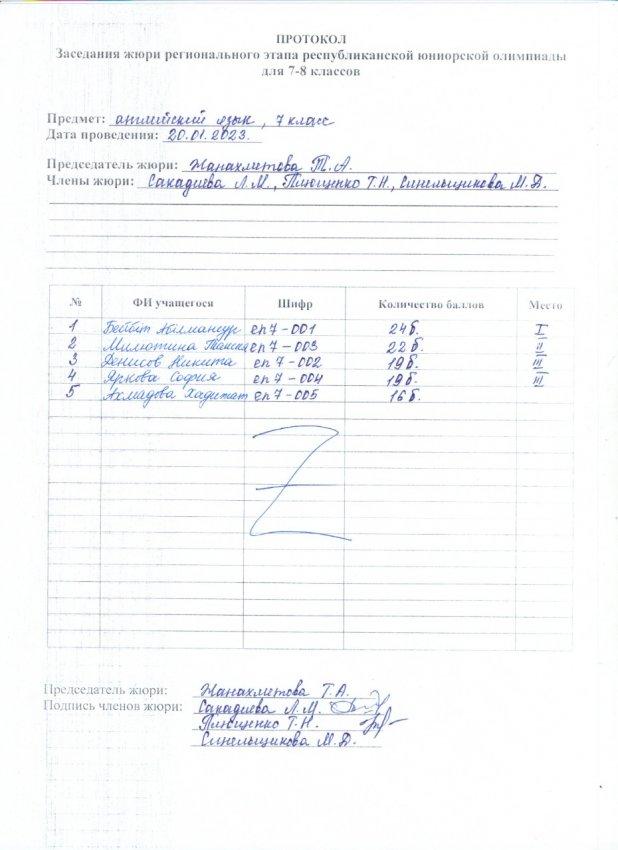 ПРОТОКОЛ
Заседания жюри регионального этапа республиканской юниорской олимпиады
для 7-8 классов
Предмет: английский язык, 7 класс
Дата проведения: 20.01.2023.
Председатель жюри: Жанахметова Т.А.
Члены жюри: Сакадиева Л.М., Плющенко Т.Н., Синельщикова М.Д.
№ ФИ учащегося Шифр Количество баллов Место
1 Бейбіт Абілмансур еп7-001 24б. I
2 Милютина еп7-003 22б. II
3 Денисов Никита еп7-002 19б. III
4 Яркова София еп7-004 19б. III
5 Ахмадова еп7-005 16б.
Z
Председатель жюри: Жанахметова Т.А.
Подпись членов жюри: Сакадиева Л.М.
Плющенко Т.Н.
Синельщикова М.Д.